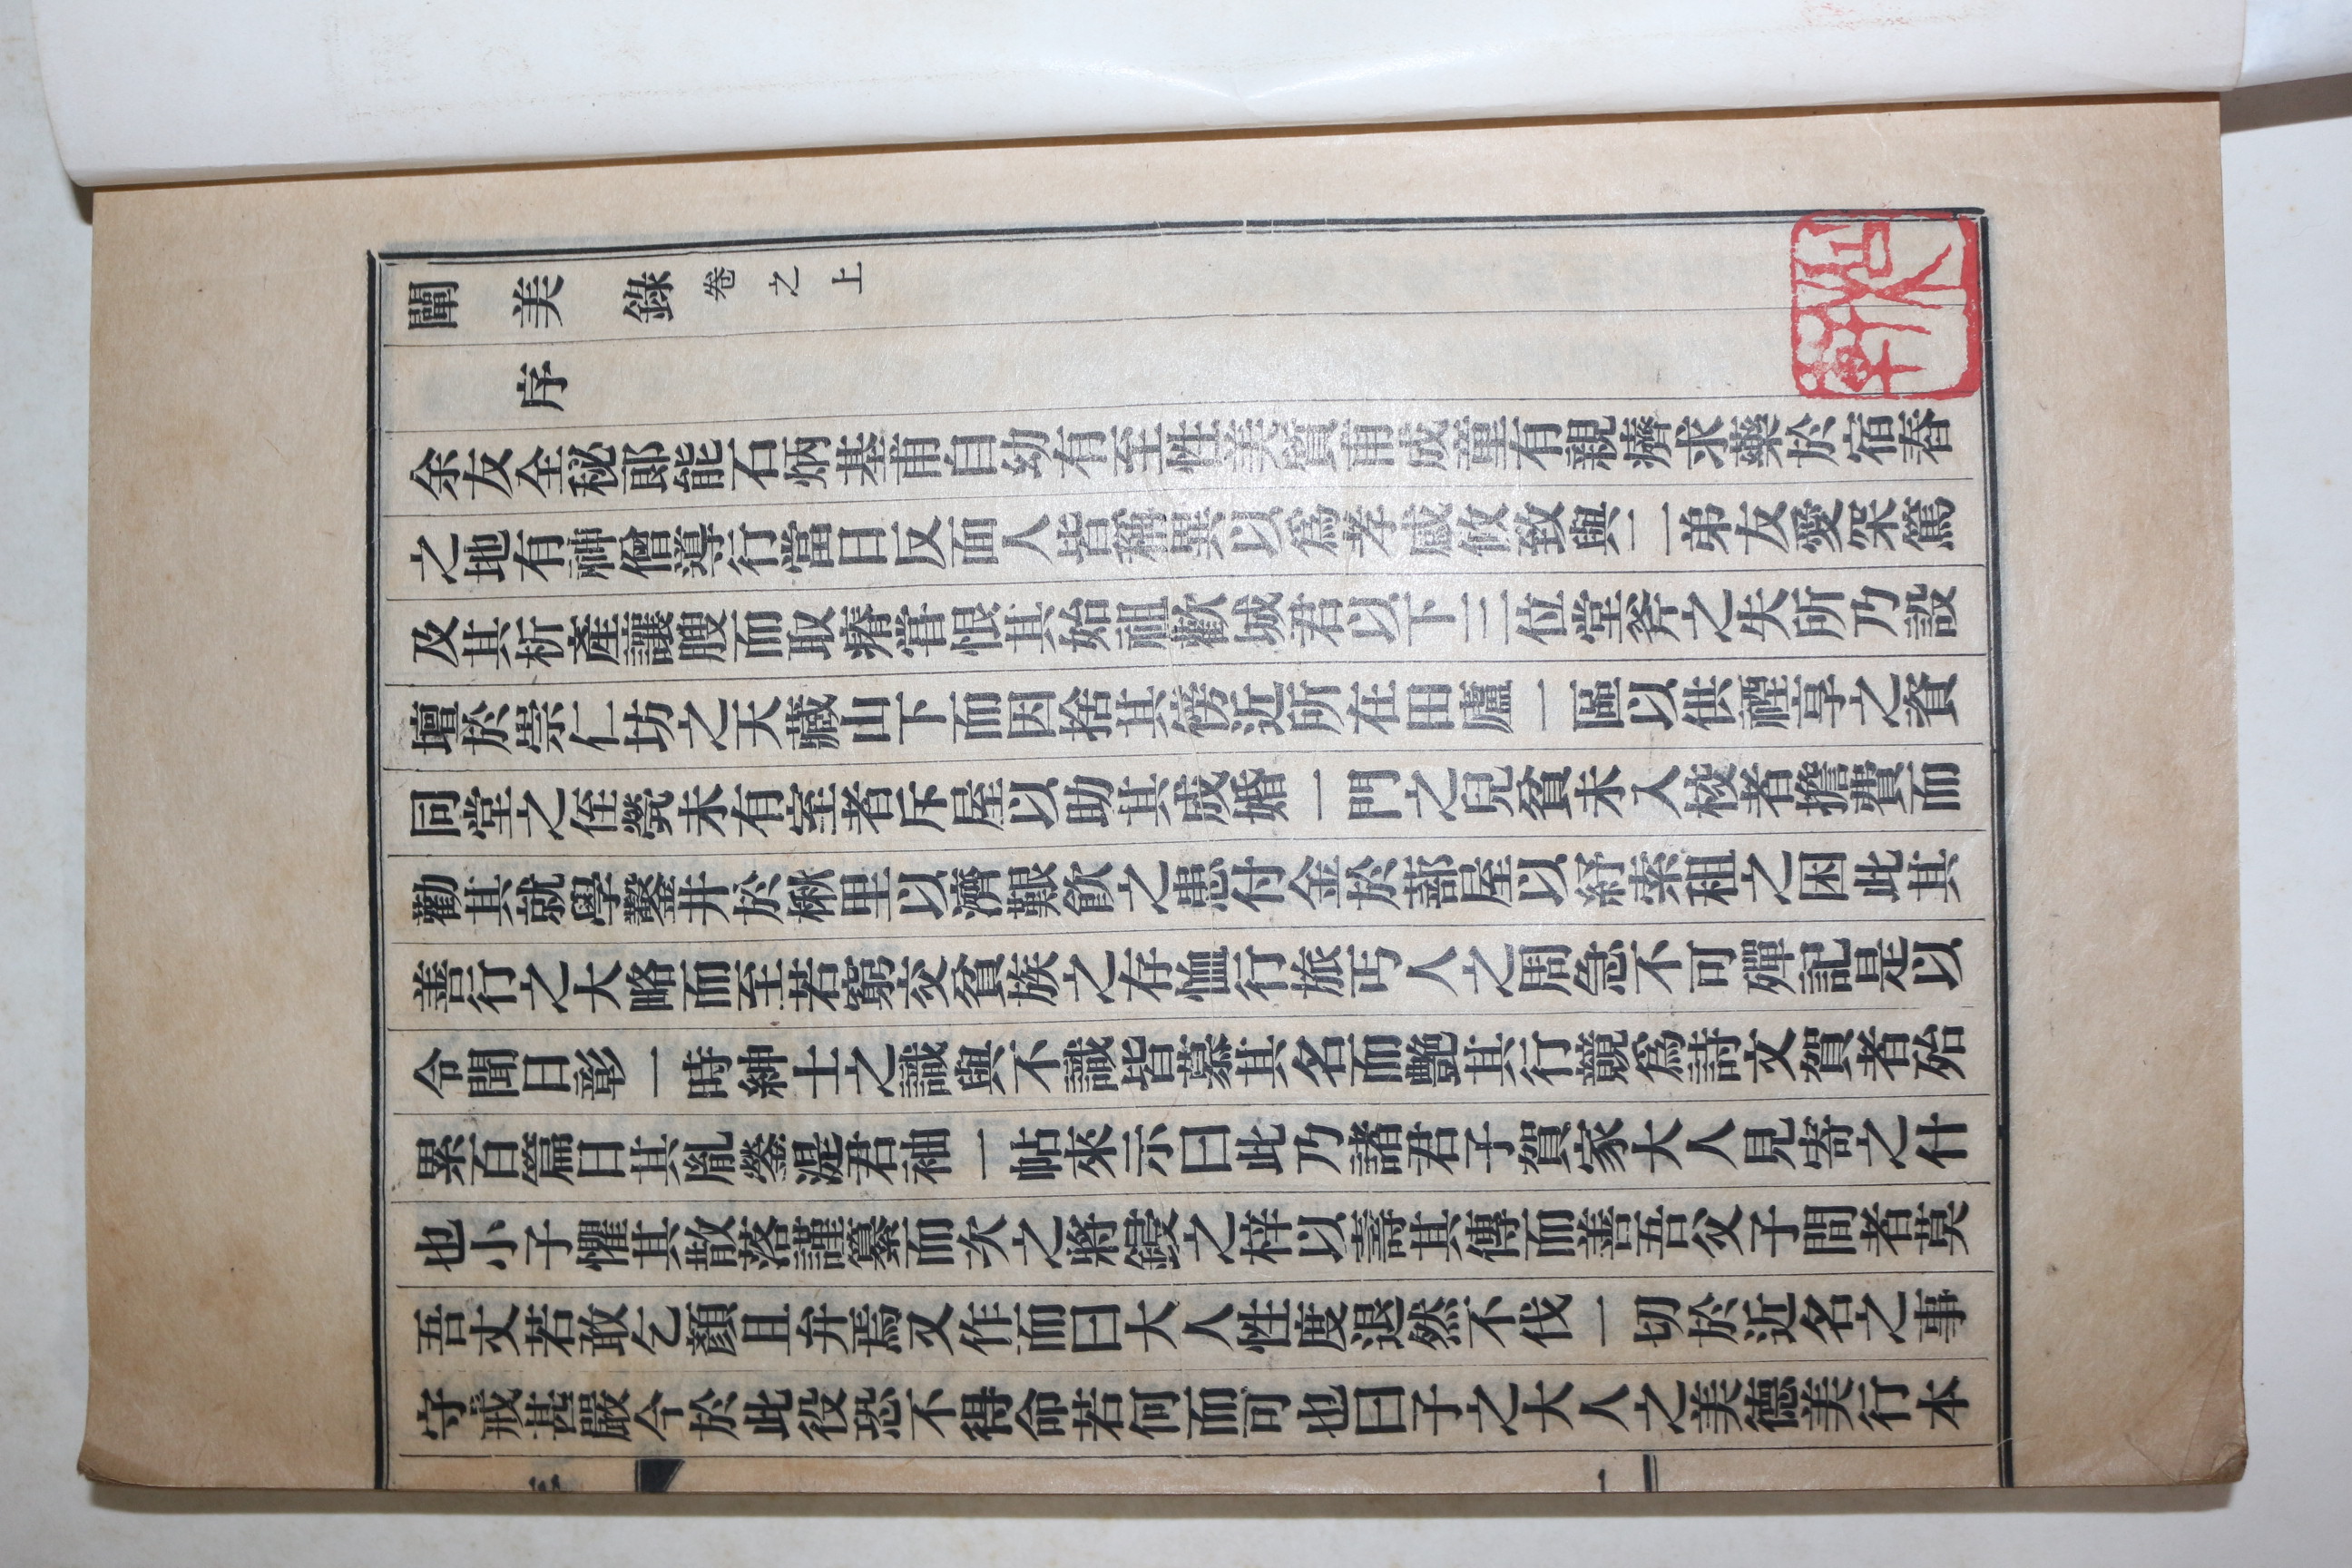 闡美錄卷之上
序
余友全秘郞能石炳基甫自幼有至性美質甫成童有親癠求藥於宿舂
之地有神僧導行當日反面人皆稱異以爲孝感攸致與二弟友愛罙篤
及其析產讓腴而取瘠甞恨其始祖歡城君以下三位堂斧之失所乃設
壇於崇仁坊之天藏山下而因捨其傍近所在田廬一區以供禋享之資
同堂之侄煢未有室者斥屋以助其成婚一門之兒貧未入校者擔費而
勸其就學鑿井於楸里以濟艱飮之患付金於蔀屋以紓索租之困此其
善行之大略而至若窮交貧族之存恤行旅丐人之周急不可殫記是以
令聞日彰一時紳士之識與不識皆慕其名而艶其行競爲詩文賀者殆
累百篇日其胤鎣湜君袖一帖來示曰此乃諸君子賀家大人見寄之什
也小子懼其散落謹纂而次之將鋟之梓以壽其傳而善吾父子間者莫
吾丈若敢乞顏且弁焉又作而曰大人性度退然不伐一切於近名之事
守戒甚嚴今於此役恐不得命若何而可也曰子之大人之美德美行本